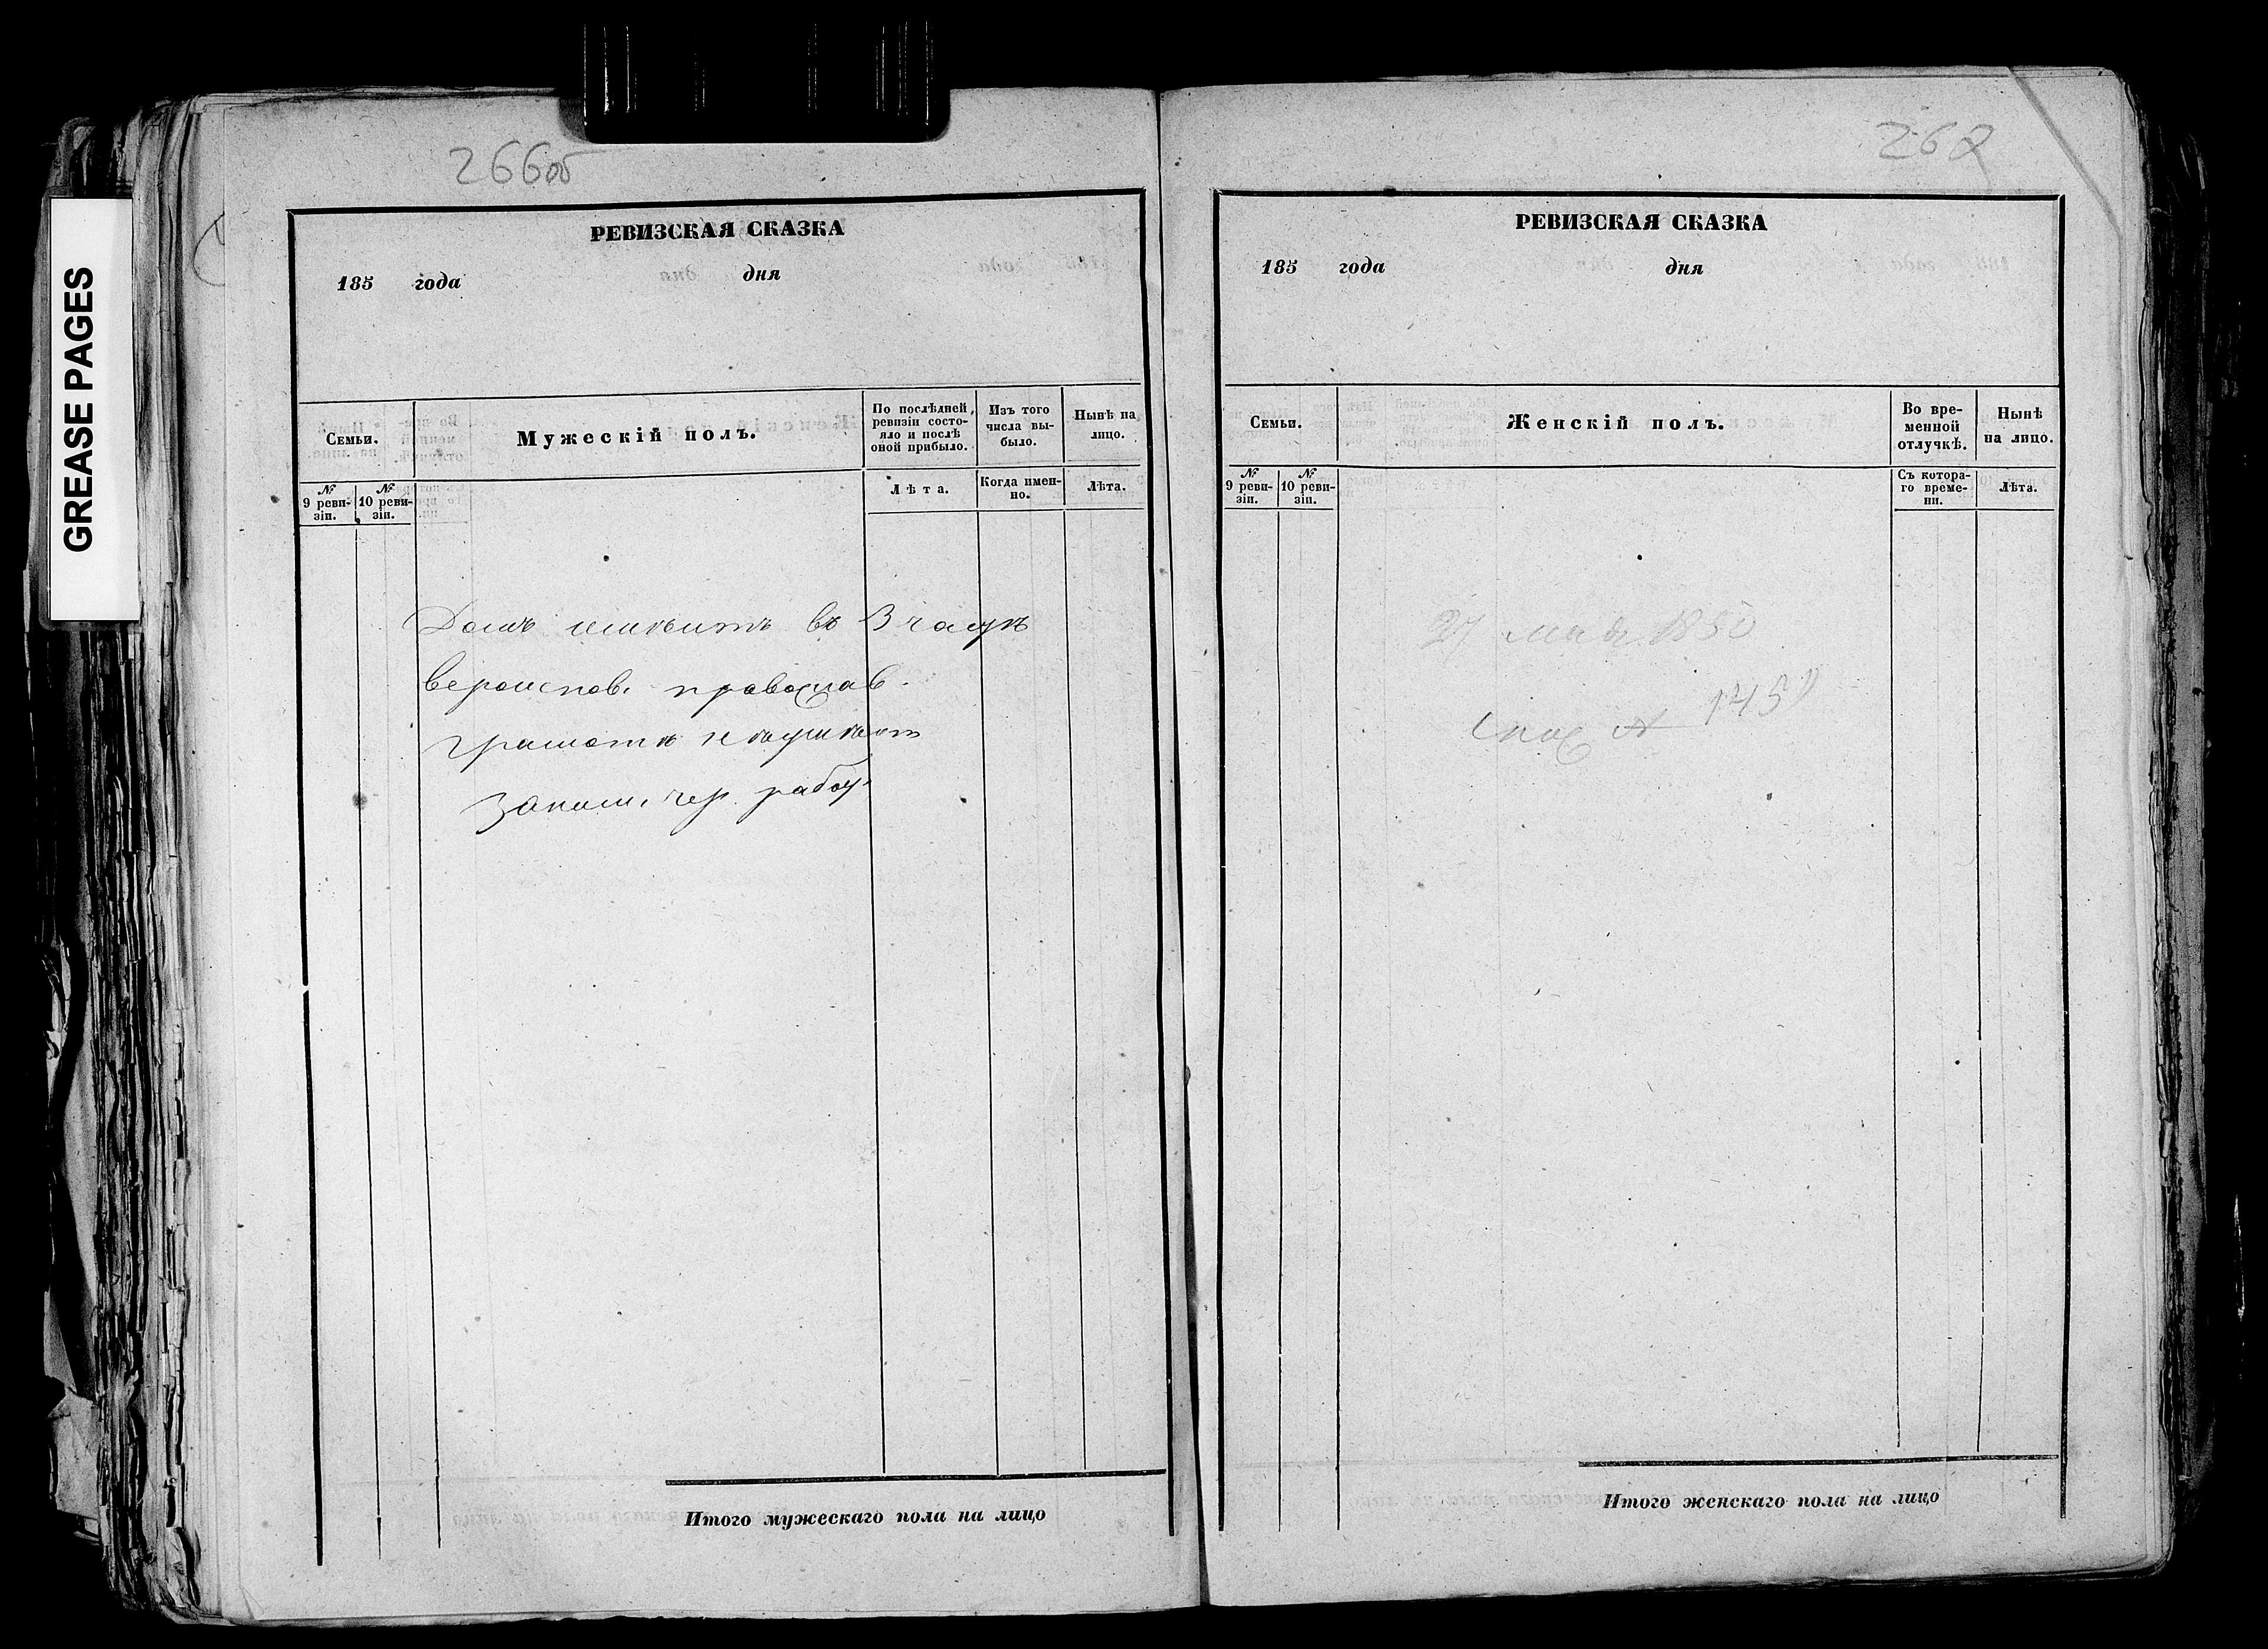 GREASE PAGES
266об
РЕВИЗСКАЯ СКАЗКА
185 года дня
Семьи.
Мужескій полъ.
По послѣдней ревизіи состо-
яло и послѣ
оной прибыло.
Изъ того
числа вы-
было.
Нынѣ на
лицо.
№
9 реви-
зіи.
№
10 реви-
зіи.
Лѣта.
Когда имен-
но.
Лѣта.
Домъ имѣетъ въ 3 части
вероиспов. православ.
грамотѣ неумѣетъ
заним. чер. работ.
Итого мужескаго пола на лицо
262
РЕВИЗСКАЯ СКАЗКА
185 года дня
Семьи.
Женскій полъ.
Во вре-
менной
отлучкѣ.
Нынѣ
на лицо.
№
9 реви-
зіи.
№
10 реви-
зіи.
Съ котора-
го време-
ни.
Лѣта.
27 мая 1850
№
Итого женскаго пола на лицо